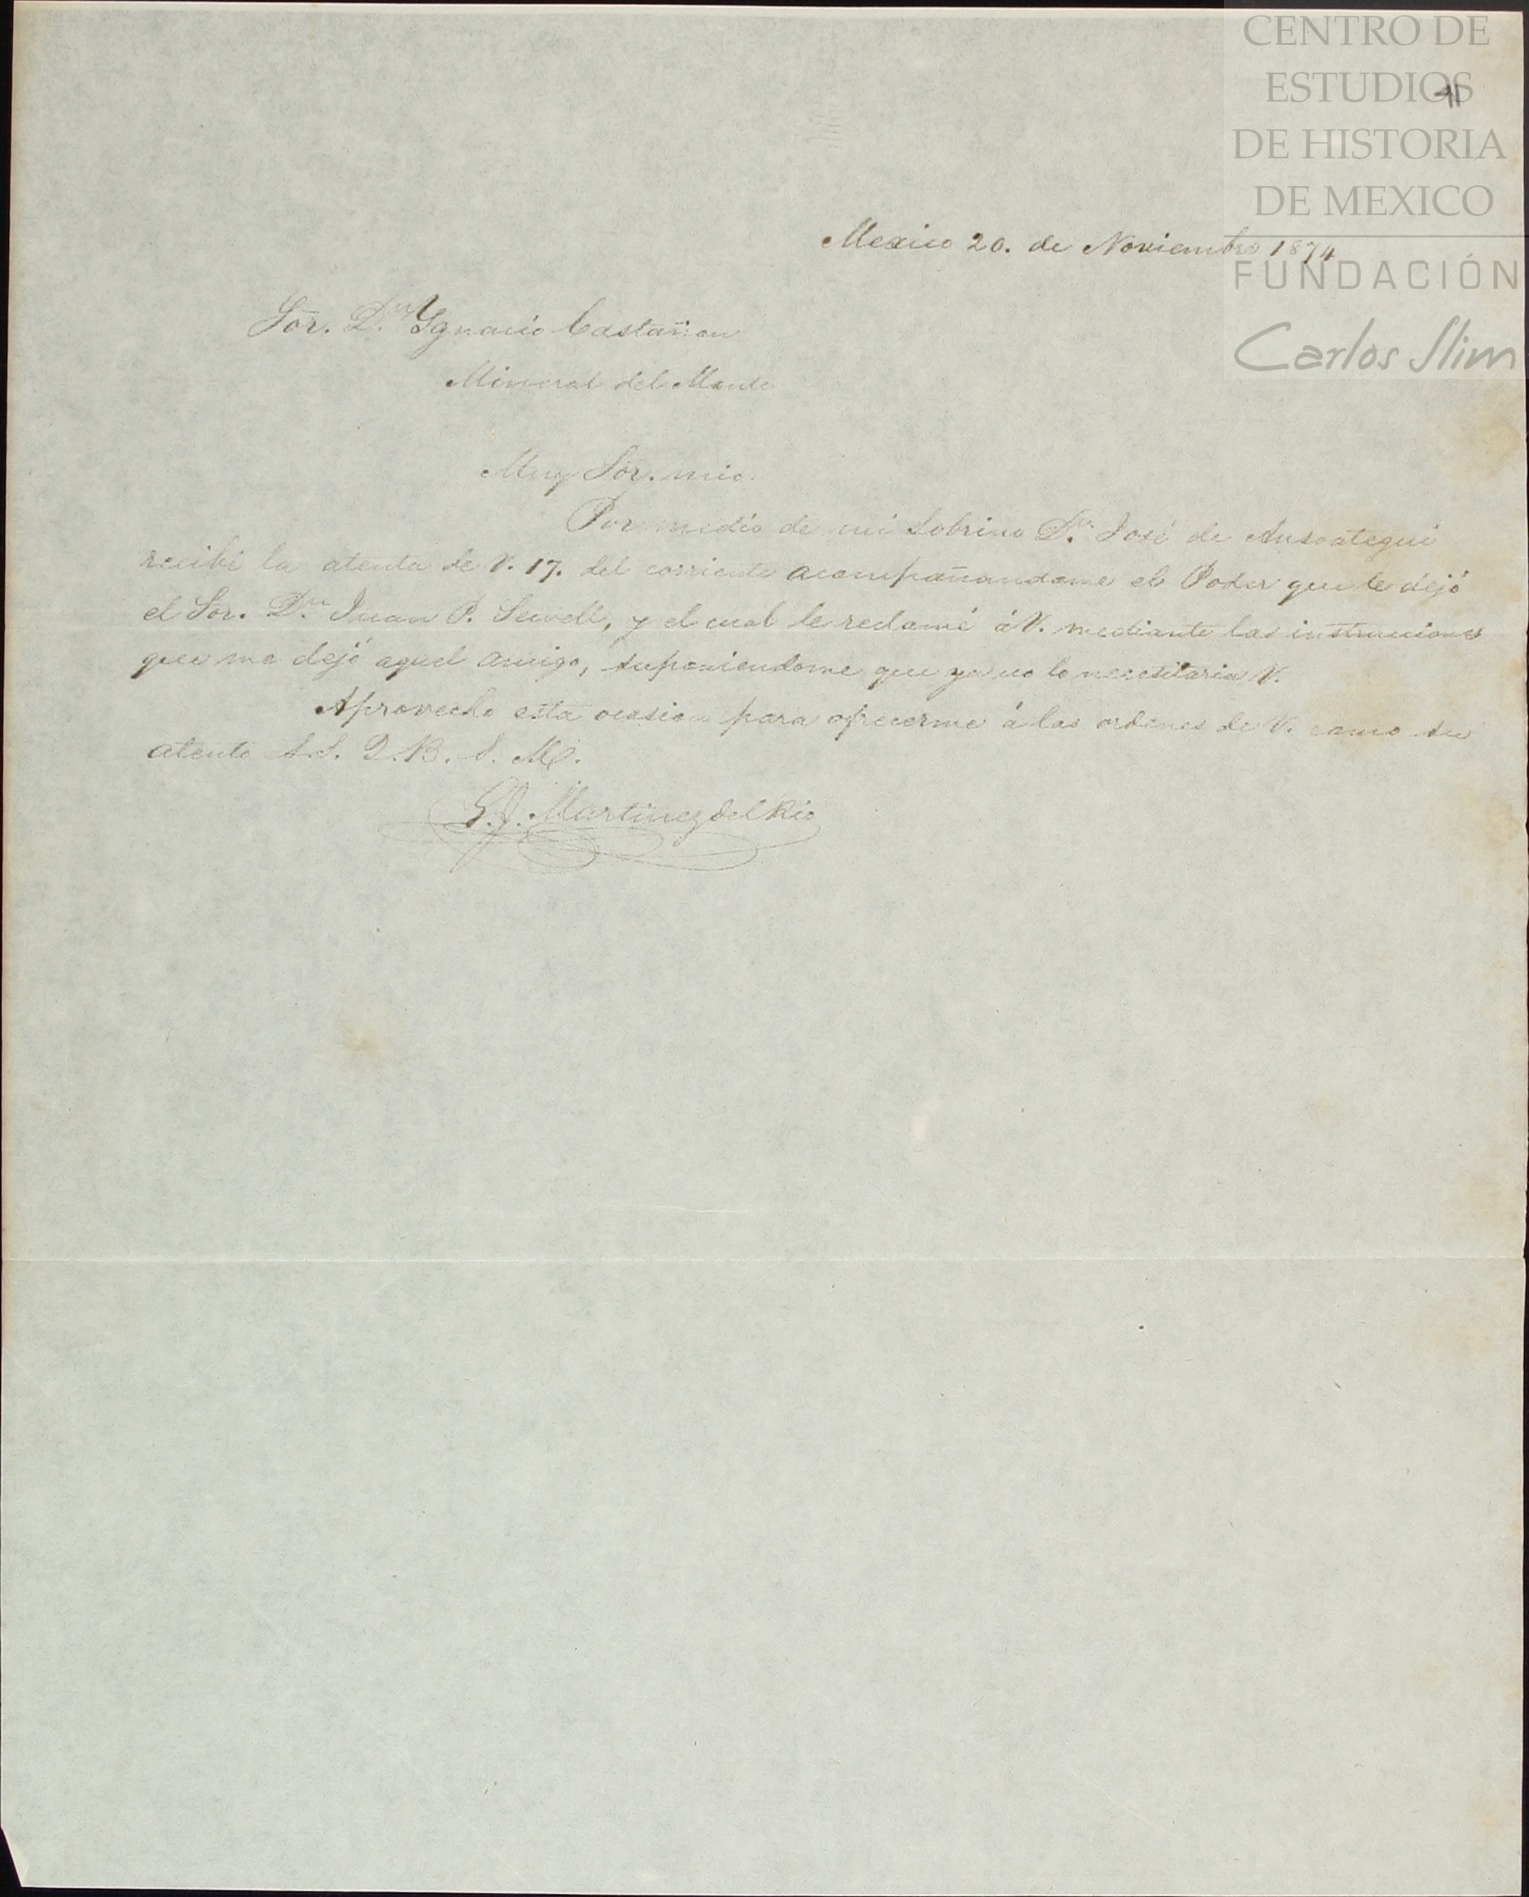 CENTRO DE
ESTUDIOS
DE HISTORIA
DE MEXICO
FUNDACIÓN
Carlos Slim
41
Mexico 20. de Noviembre 1874
Sor. Dn. Ygnacio Castañon
Mineral del Monte
Muy Sor. mio.
Por medio de mi Sobrino Dn. José de Ansoategui
recibi la atenta de V. 17. del corriente acompañandome el Poder que le dejó
el Sor. Dn. Juan P. Sewell, y el cual le reclamé á V. mediante las instrucciones
que me dejó aquel amigo, suponiendome que ya no lo necesitaria V.
Aprovecho esta ocasion para ofrecerme á las ordenes de V. como su
atento S.S. Q.B.S.M.
G.J. Martinez del Rio